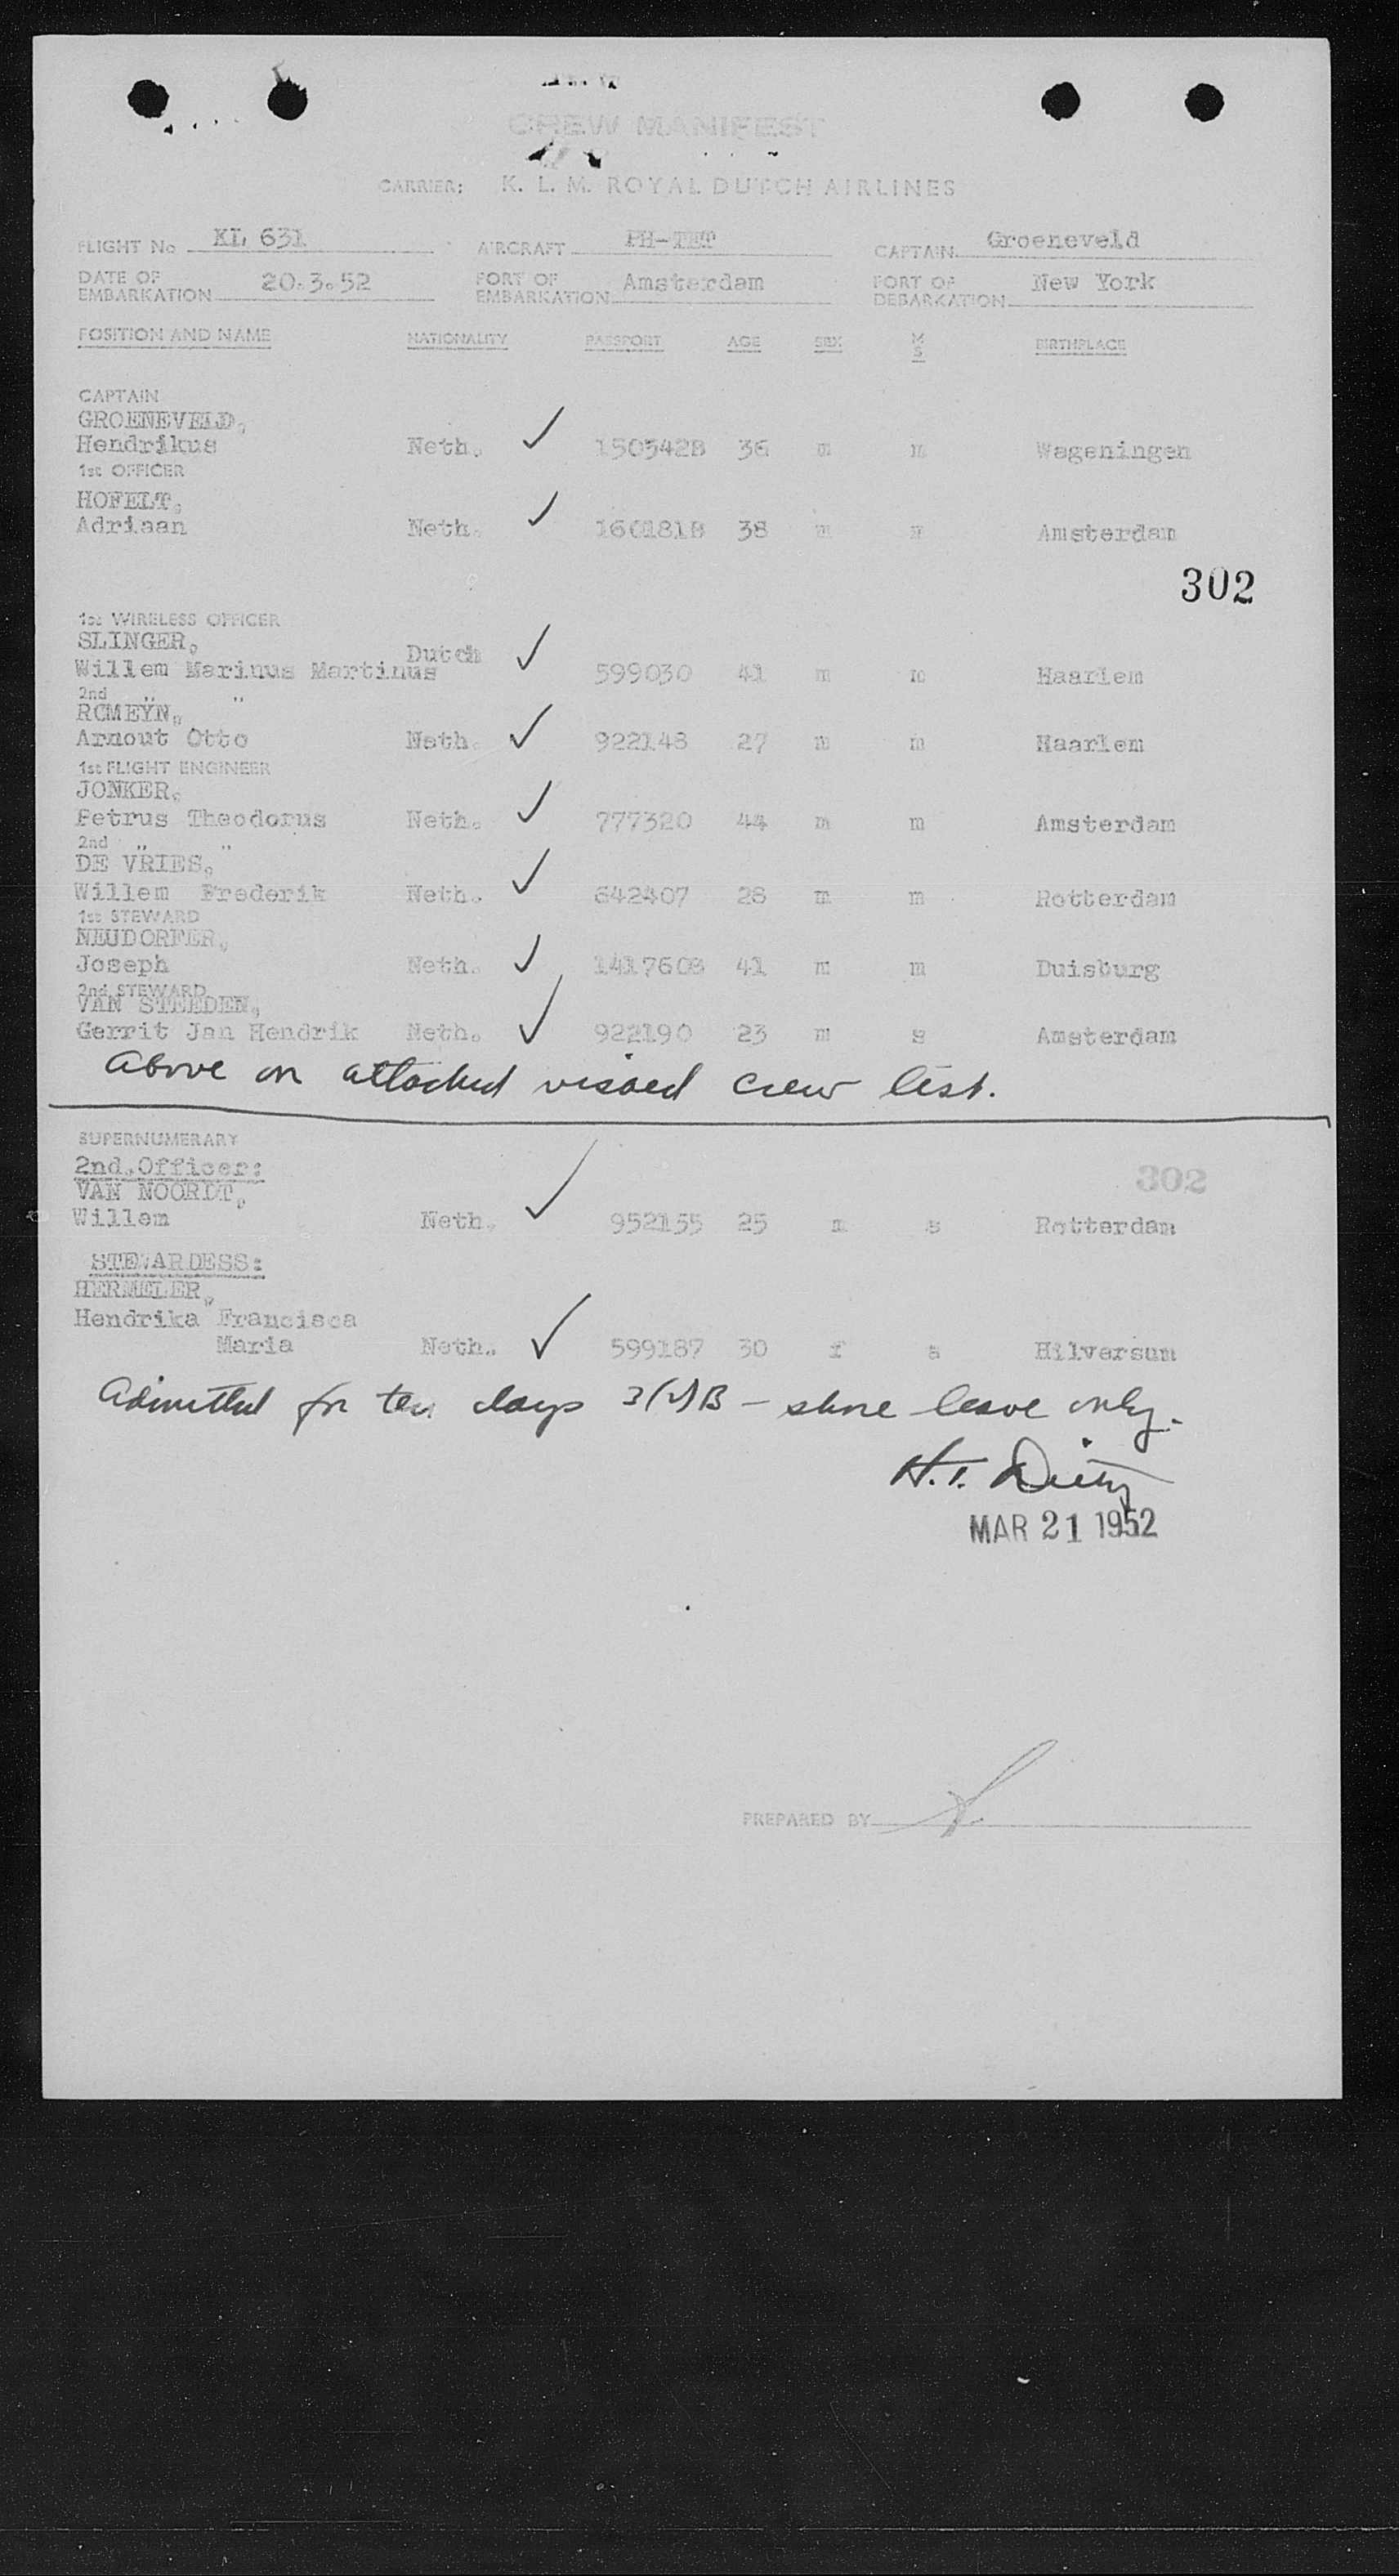 CREW MANIFEST
CARRIER: K. L. M. ROYAL DUTCH AIRLINES
FLIGHT No KL 631 AIRCRAFT PH-TET CAPTAIN Groeneveld
DATE OF EMBARKATION 20.3.52 PORT OF EMBARKATION Amsterdam PORT OF DEBARKATION New York
POSITION AND NAME NATIONALITY PASSPORT AGE SEX M S BIRTHPLACE
CAPTAIN
GROENEVELD,
Hendrikus Neth. ✓ 150542B 36 m m Wageningen
1st OFFICER
HOFELT,
Adriaan Neth. ✓ 160181B 38 m m Amsterdam
302
1st WIRELESS OFFICER
SLINGER,
Willem Marinus Martinus Dutch ✓ 599030 41 m m Haarlem
2nd " "
ROMEYN,
Arnout Otto Neth. ✓ 922148 27 m m Haarlem
1st FLIGHT ENGINEER
JONKER,
Petrus Theodorus Neth. ✓ 777320 44 m m Amsterdam
2nd " "
DE VRIES,
Willem Frederik Neth. ✓ 642407 28 m m Rotterdam
1st STEWARD
NEUDORFER,
Joseph Neth. ✓ 141760B 41 m m Duisburg
2nd STEWARD
VAN STEEDEN,
Gerrit Jan Hendrik Neth. ✓ 922190 23 m s Amsterdam
Above on attached visaed crew list.
SUPERNUMERARY
2nd.Officer:
302
VAN NOORDT,
Willem Neth. ✓ 952155 25 m s Rotterdam
STEWARDESS:
HERMELER,
Hendrika Francisca
Maria Neth. ✓ 599187 30 f s Hilversum
Admitted for ten days 3(2)B - shore leave only.
H.T.
MAR 21 1952
PREPARED BY